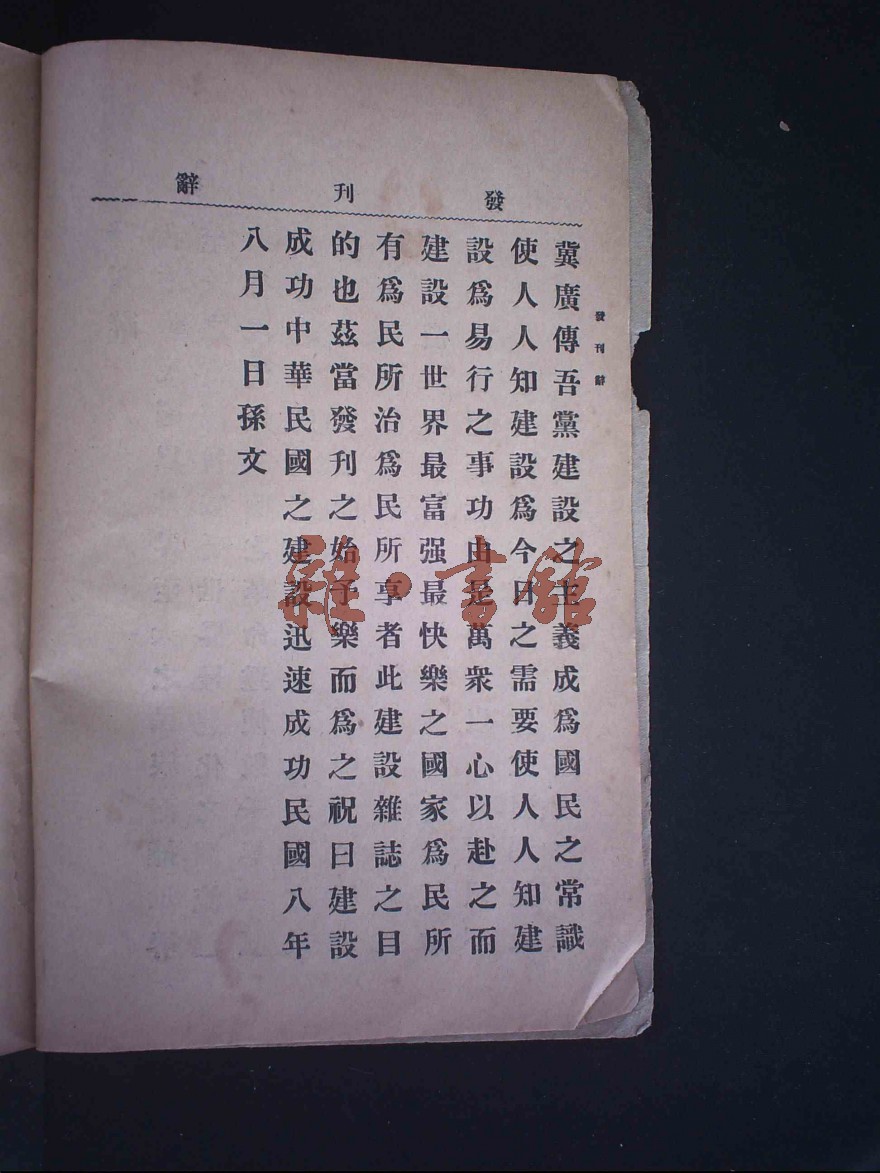 發刊辭
發刊辭
冀廣傳吾黨建設之主義成爲國民之常識
使人人知建設爲今日之需要使人人知建
設爲易行之事功由是萬衆一心以赴之而
建設一世界最富强最快樂之國家爲民所
有爲民所治爲民所享者此建設雜誌之目
的也茲當發刊之始予樂而爲之祝曰建設
成功中華民國之建設迅速成功民國八年
八月一日孫文
雜·書館